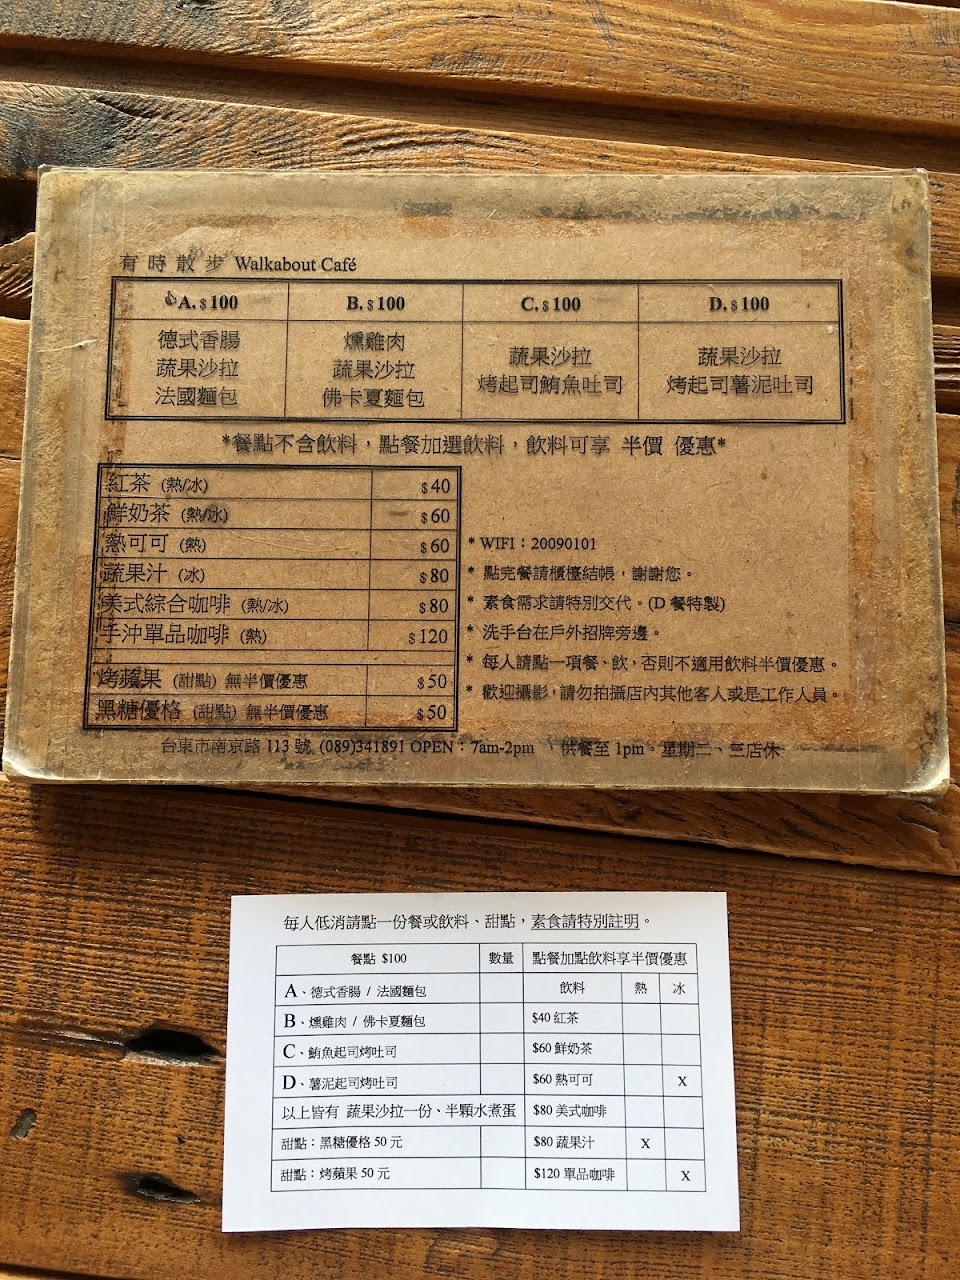 有時散步 Walkabout Café
A. $100 B. $100 C. $100 D. $100
德式香腸 蔬果沙拉 法國麵包
燻雞肉 蔬果沙拉 佛卡夏麵包
蔬果沙拉 烤起司鮪魚吐司
蔬果沙拉 烤起司薯泥吐司
*餐點不含飲料，點餐加選飲料，飲料可享 半價 優惠*
紅茶 (熱/冰) $40
鮮奶茶 (熱/冰) $60
熱可可 (熱) $60
蔬果汁 (冰) $80
美式綜合咖啡 (熱/冰) $80
手沖單品咖啡 (熱) $120
烤蘋果 (甜點) 無半價優惠 $50
黑糖優格 (甜點) 無半價優惠 $50
* WIFI：20090101
* 點完餐請櫃檯結帳，謝謝您。
* 素食需求請特別交代。(D 餐特製)
* 洗手台在戶外招牌旁邊。
* 每人請點一項餐、飲，否則不適用飲料半價優惠。
* 歡迎攝影，請勿拍攝店內其他客人或是工作人員。
台東市南京路 113 號 (089)341891 OPEN：7am-2pm 、供餐至 1pm。星期二、三店休
每人低消請點一份餐或飲料、甜點，素食請特別註明。
餐點 $100 數量 點餐加點飲料享半價優惠
A、德式香腸 / 法國麵包 飲料 熱 冰
B、燻雞肉 / 佛卡夏麵包 $40 紅茶
C、鮪魚起司烤吐司 $60 鮮奶茶
D、薯泥起司烤吐司 $60 熱可可 X
以上皆有 蔬果沙拉一份、半顆水煮蛋 $80 美式咖啡
甜點：黑糖優格 50 元 $80 蔬果汁 X
甜點：烤蘋果 50 元 $120 單品咖啡 X